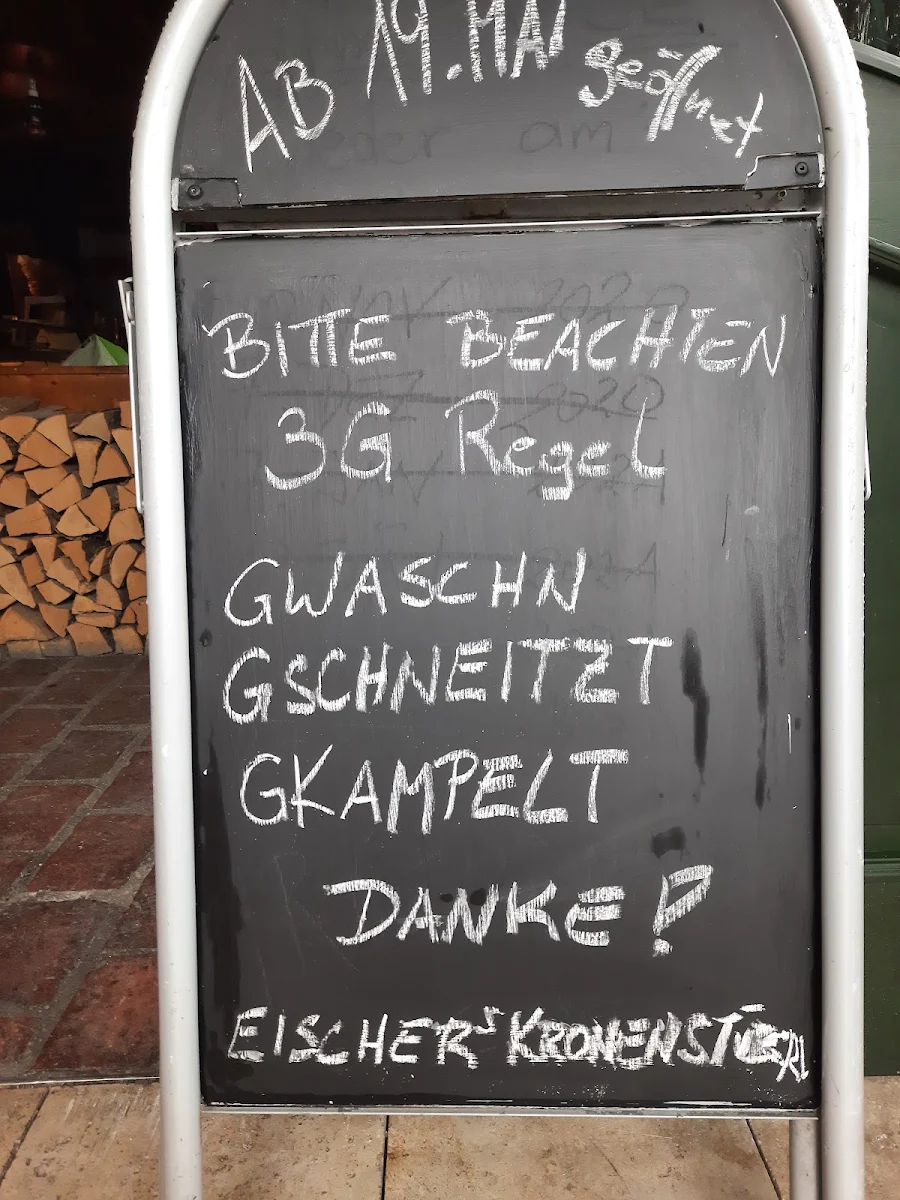 AB 19. MAI geöffnet
BITTE BEACHTEN
3G Regel
GWASCHN
GSCHNEITZT
GKAMPELT
DANKE!
EISCHER'S KRONENSTÜBERL